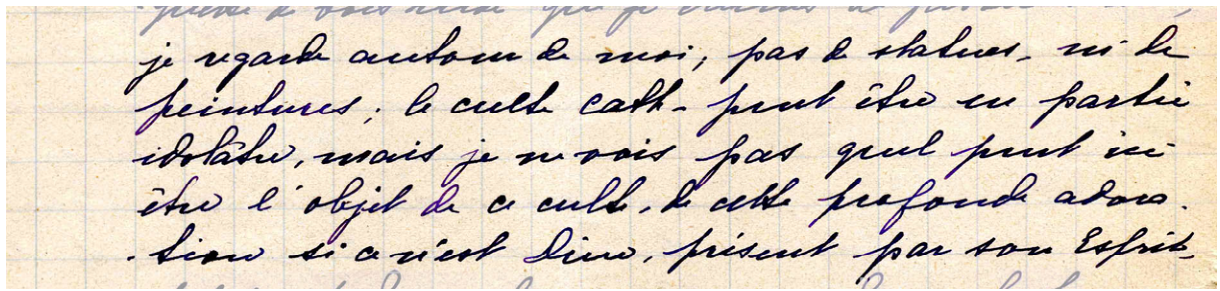 je regarde autour de moi, pas de statues, ni de
peintures ; le culte cath. peut être en partie
idolâtre, mais je ne vois pas quel peut ici
être l'objet de ce culte, de cette profonde adora-
-tion si ce n'est Dieu, présent par son Esprit